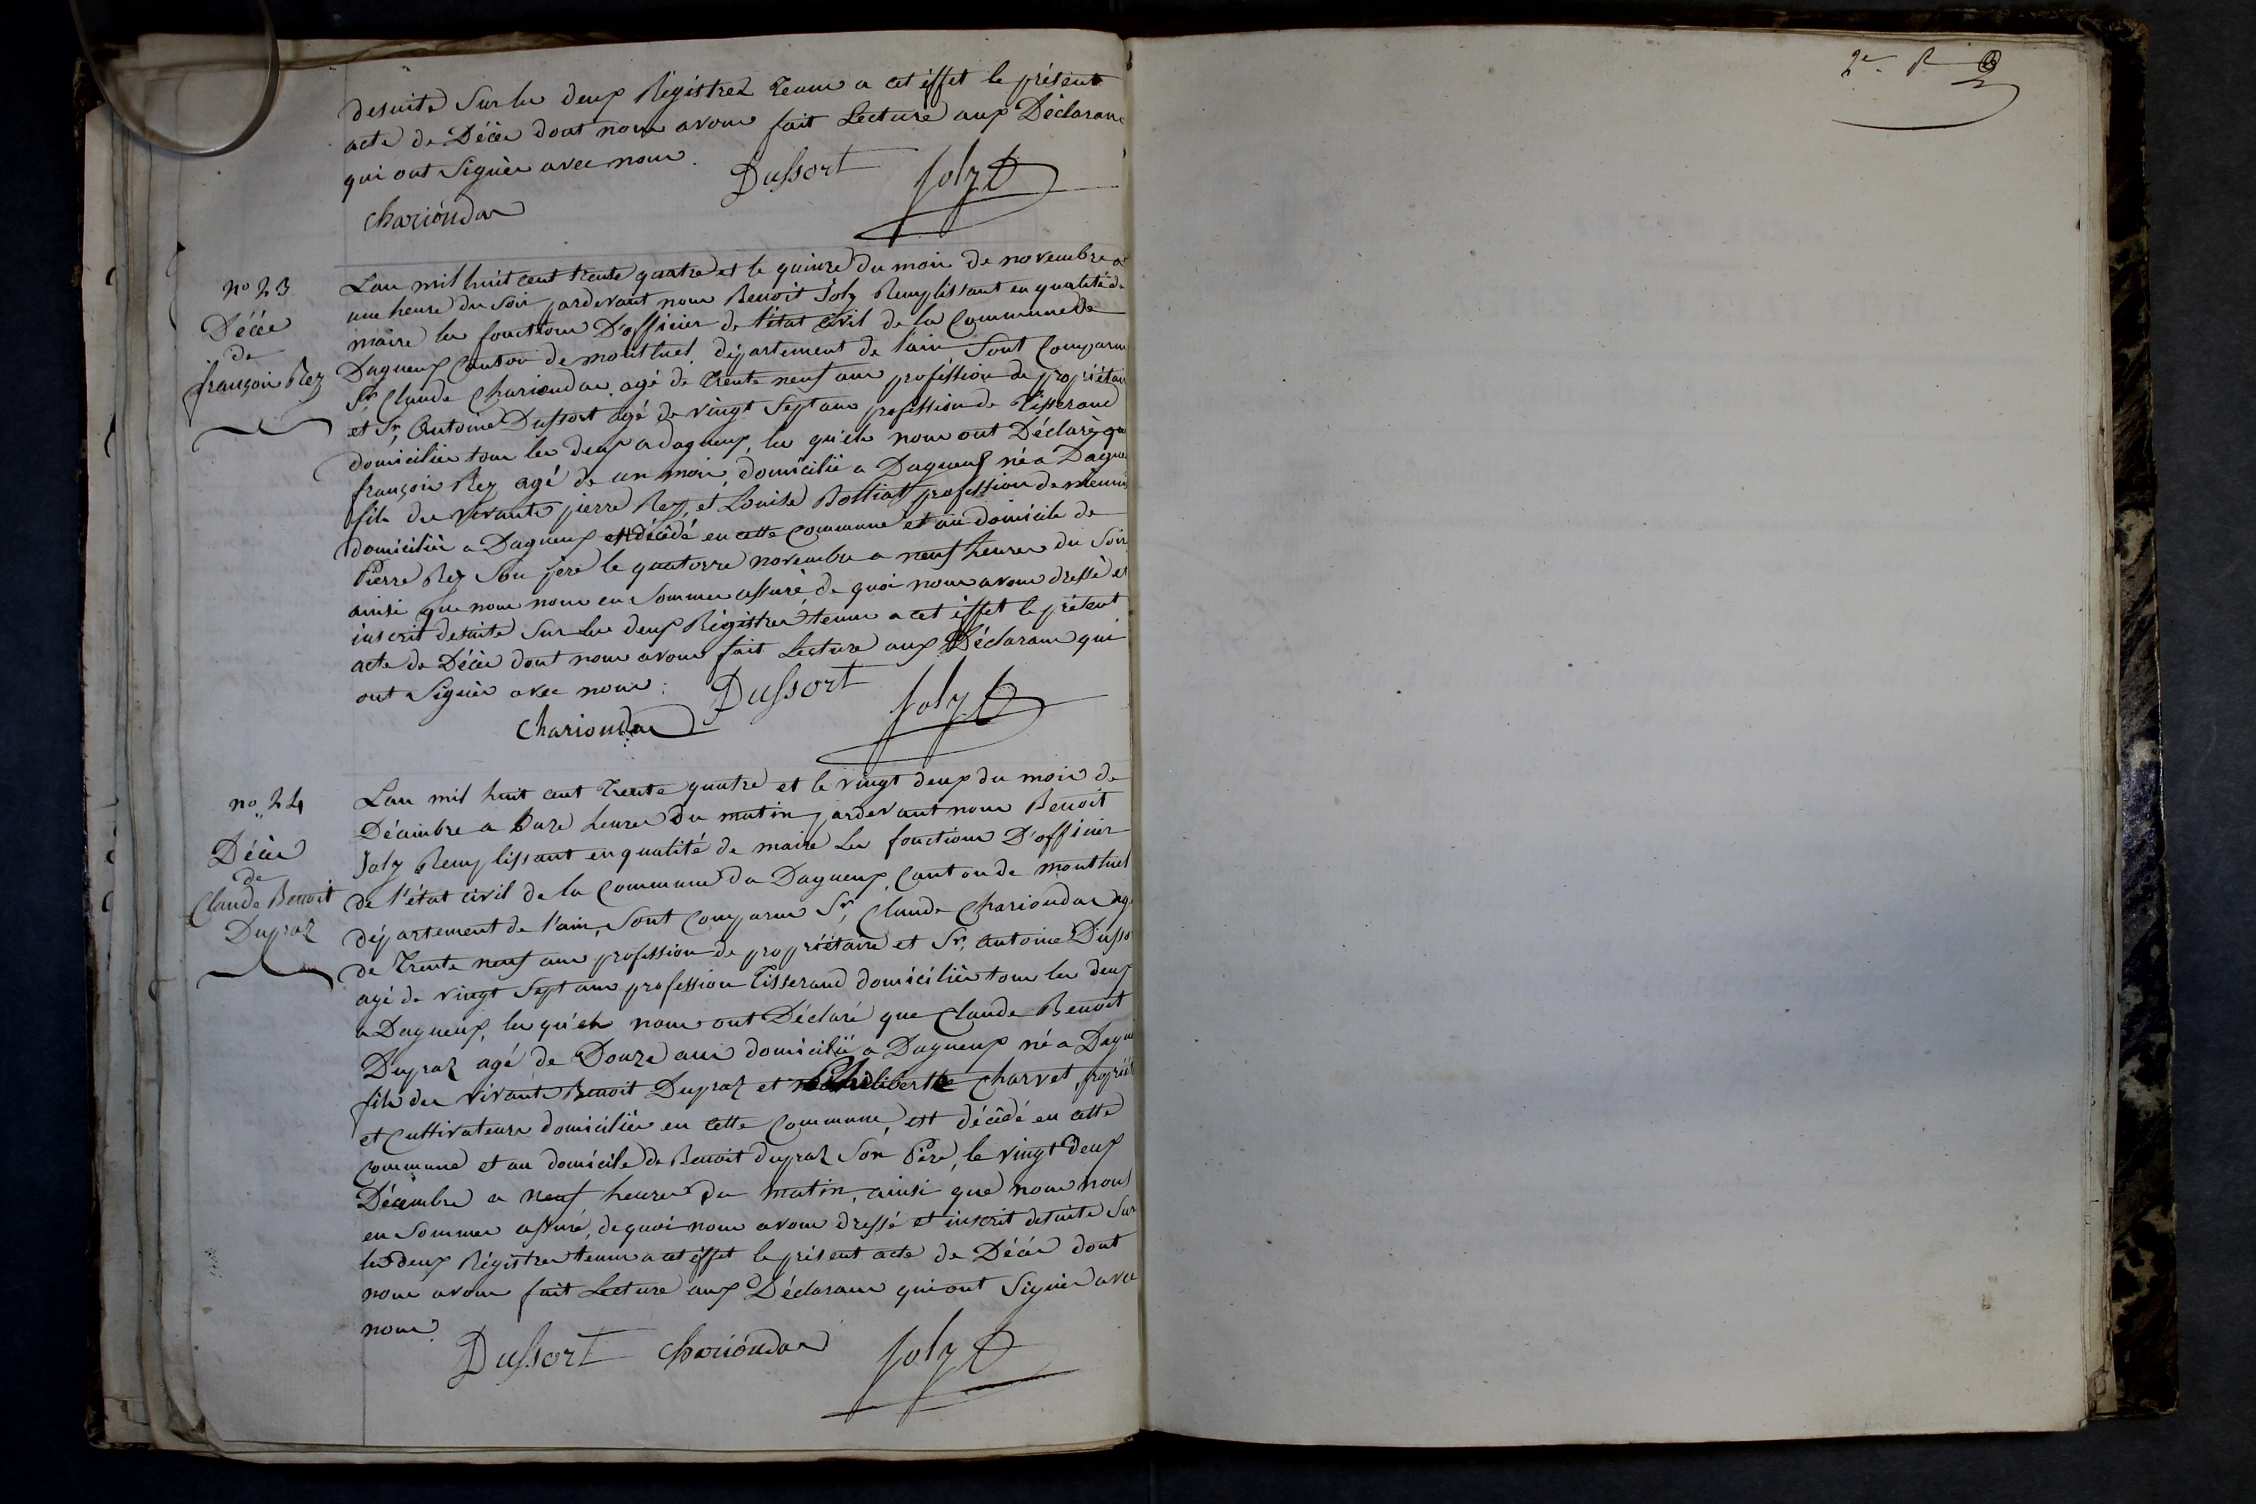 desuite Sur les deux Régistrez tenus a cet éffet le présent
acte de Décès dont nous avons fait Lecture aux Déclarans
qui ont Signés avec nous.
Dussort Joly
Chariondas
no 23
Décès
de
françois Rey
L'an mil huit cent trente quatre et le quinze du mois de novembre a
une heure du Soir pardevant nous Benoit Joly Remplissant en qualité de
maire les fonctions D'officier de l'état Civil de la Commune de
Dagneux Canton de montluel, département de l'ain Sont Comparus
Sr Claude Chariondas agé de trente neuf ans proféssion de propriétaire
et Sr, Antoine Dussort agé de vingt Sept ans proféssion de Tisserand
domiciliés tous les deux a dagneux, les qu'els nous ont Déclarés que
françois Rey agé de un mois, domicilié a Dagneux né a Dagneux
fils des vivants pierre Rey, et Louise Bolliat profession de
domiciliés a Dagneux est décédé en cette Commune et au domicile de
Pierre Rey Son père le quatorze novembre a neuf heures du Soir
ainsi que nous nous en Sommes assuré, de quoi nous avons dressé et
inscrit desuite Sur Les deux Régistres tenus a cet éffet le présent
acte de Décès dont nous avons fait Lecture aux Déclarans qui
ont Signés avec nous.
Dussort Joly
Chariondas
no 24
Décès
de
Claude Benoit
Dupraz
L'an mil huit cent trente quatre et le vingt deux du mois de
Décembre a onze heures du matin pardevant nous Benoit
Joly Remplissant en qualité de maire Les fonctions D'officier
de l'état civil de la Commune de Dagneux, Canton de montluel
département de l'ain, Sont Comparus Sr, Claude Chariondas agé
de trente neuf ans profession de propriétaire et Sr, Antoine Dusso
agé de vingt Sept ans profession Tisserand domiciliés tous les deux
a Dagneux, les qu'els nous ont Déclaré que Claude Benoit
Dupraz agé de Douze ans domicilié a Dagneux né a Dagne
fils des vivants Benoit Dupraz et Philiberthe Charvet, propriét
et Cultivateurs domiciliés en cette Commune, est décédé en cette
Commune et au domicile de Benoit dupraz Son Père, le vingt Deux
Décembre a neuf heures du matin, ainsi que nous nous
en Sommes assuré, de quoi nous avons dressé et inscrit desuite Sur
les deux Régistres tenus a cet éffet le présent acte de Décès dont
nous avons fait Lecture aux Déclarans qui ont Signés avec
nous.
Dussort Chariondas Joly